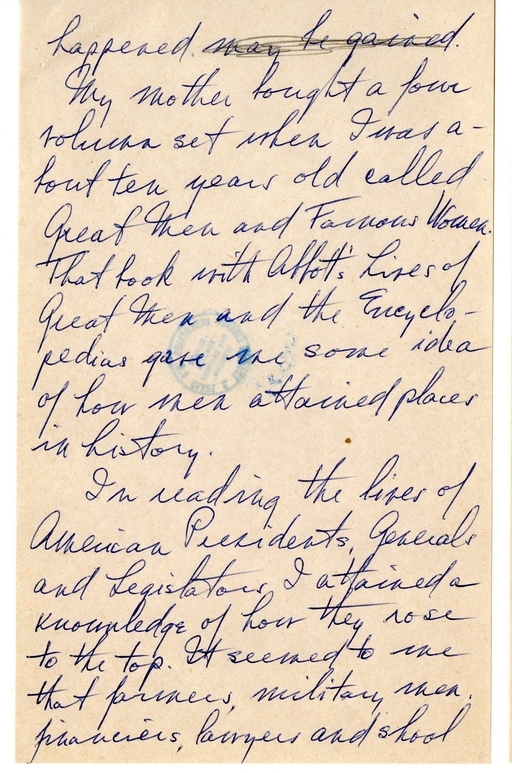 happened. may be gained.
My mother bought a four
volumn set when I was a-
bout ten years old called
Great Men and Famous Women.
That book with Abbot's Lives of
Great Men and the Encyclo-
pedias gave me some idea
of how men attained places
in history.
In reading the lives of
American Presidents, Generals
and Legislators, I attained a
knowledge of how they rose
to the top. It seemed to me
that farmers, military men,
financiers, lawyers and shool